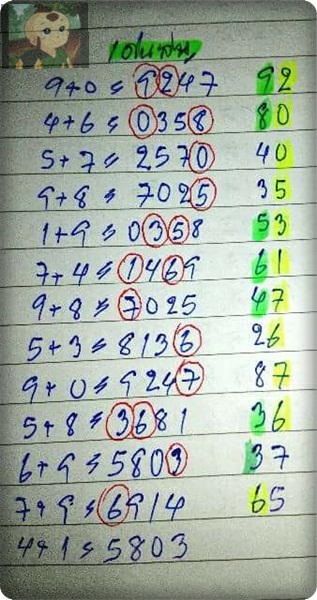 9+0 = 9247 92
4+6 = 0358 80
5+7 = 2570 40
9+8 = 7025 35
1+9 = 0358 53
7+4 = 1469 61
9+8 = 7025 47
5+3 = 8136 26
9+0 = 9247 87
5+8 = 3681 36
6+9 = 5803 37
7+9 = 6914 65
4+1 = 5803